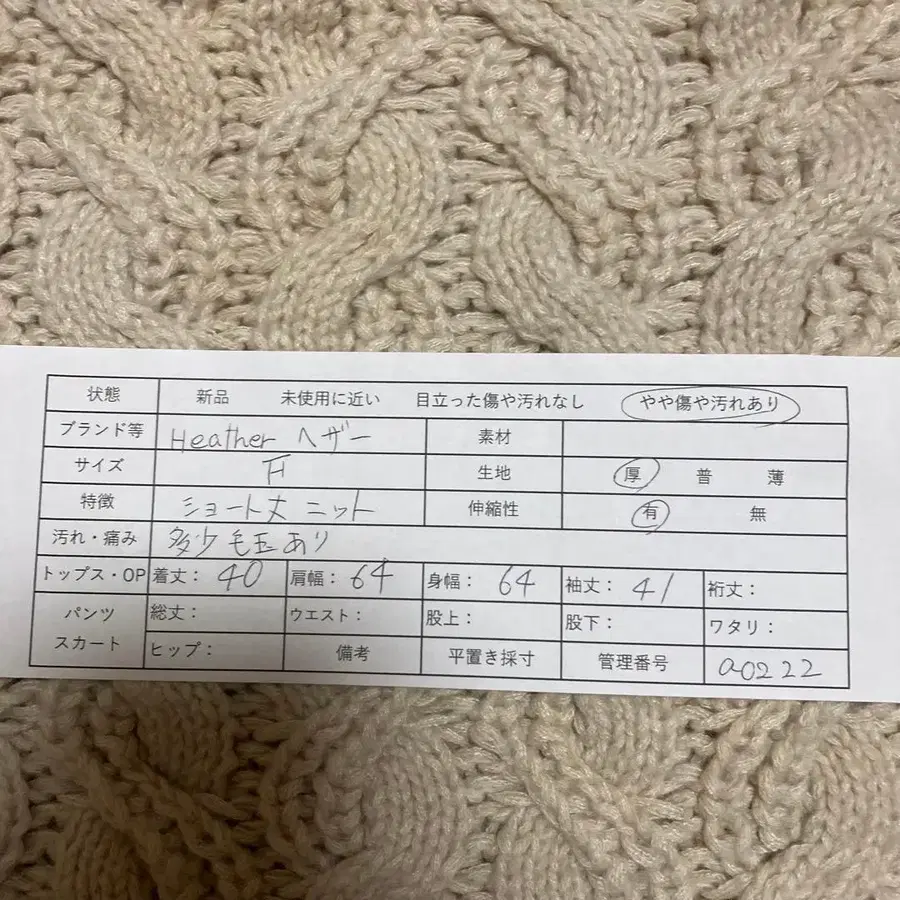 状態 新品 未使用に近い 目立った傷や汚れなし やや傷や汚れあり
ブランド等 Heather ヘザー 素材
サイズ F 生地 厚 普 薄
特徴 ショート丈 ニット 伸縮性 有 無
汚れ・痛み 多少毛玉あり
トップス・OP 着丈: 40 肩幅: 64 身幅: 64 袖丈: 41 裄丈:
パンツ 総丈: ウエスト: 股上: 股下: ワタリ:
スカート ヒップ: 備考 平置き採寸 管理番号 a0222